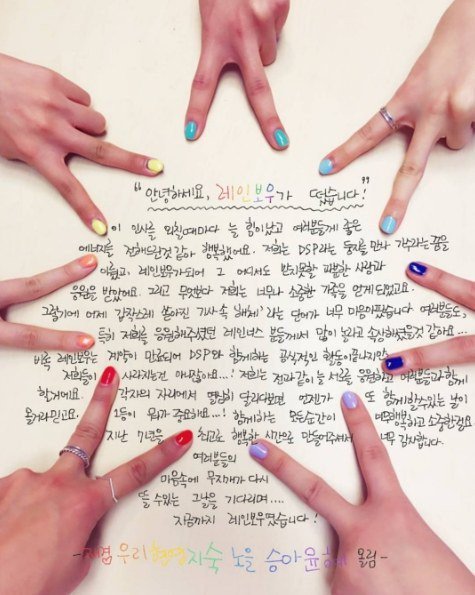 "안녕하세요, 레인보우가 떴습니다!"
이 인사를 외칠때마다 늘 힘이났고 여러분들께 좋은
에너지를 전해드린것 같아 행복했어요. 저희는 DSP라는 둥지를 만나 가수라는꿈을
이뤘고, 레인보우가되어 그 어디서도 받지못할 과분한 사랑과
응원을 받았어요. 그리고 무엇보다 저희는 너무나 소중한 가족을 얻게되었고요.
그렇기에 어제 갑작스레 쏟아진 기사속 '해체'라는 단어가 너무 마음아팠습니다 여러분들도,
특히 저희를 응원해주셨던 레인너스 분들께서 많이 놀라고 속상하셨을것 같아요...
비록 레인보우는 계약이 만료되어 DSP와 함께하는 공식적인 활동이끝나지만
저희들이 사라지는건 아니잖아요...! 저희는 전과같이 늘 서로를 응원하고 여러분들과함께
할거에요. 각자의 자리에서 열심히 달리다보면 언젠가 또 함께할수있는 날이
올거라믿고요. 1등이 뭐가 중요해요...! 함께하는 모든순간이 행복하고 소중한걸요
지난 7년을 최고로 행복한 시간으로 만들어주셔서 너무 감사합니다.
여러분들의
마음속에 무지개가 다시
뜰 수있는 그날을 기다리며....
지금까지 레인보우였습니다!
우리 현영 지숙 노을 승아 윤혜 올림-